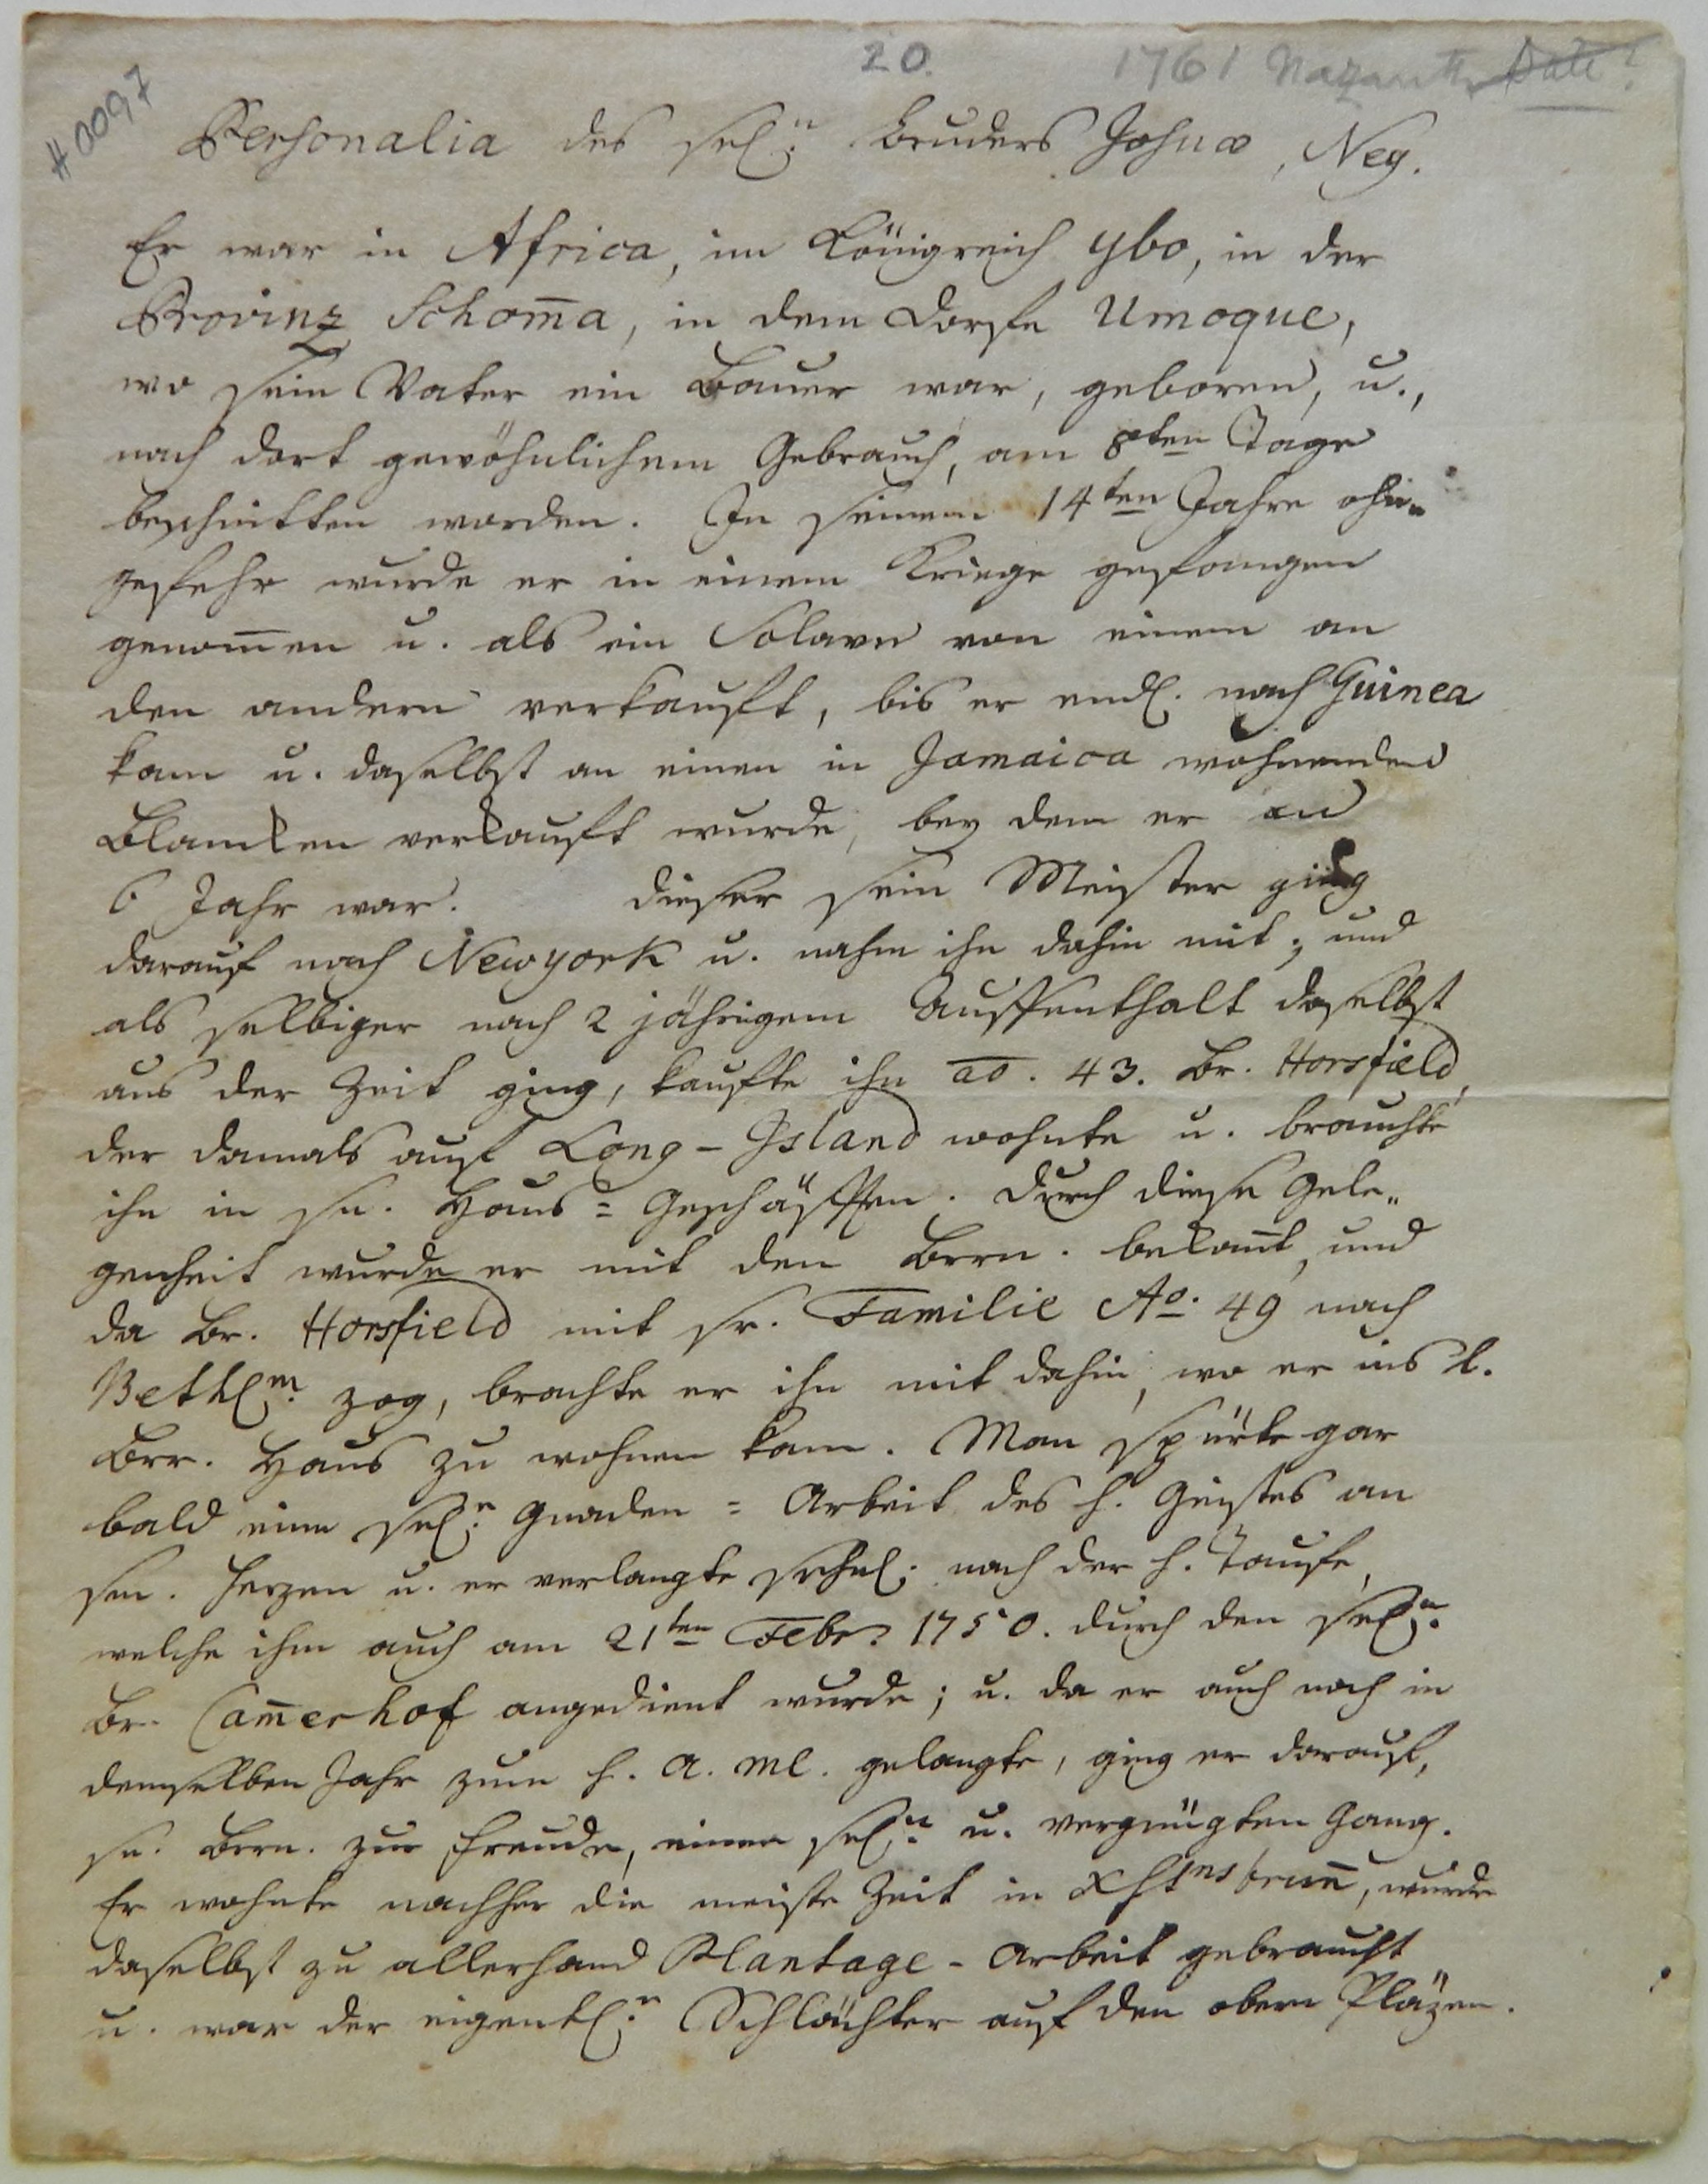 20.
1761 Nazareth Date?
# 0097
Personalia des sel.n Bruders Josua, Neg.
Er war in Africa, im Königreich Ybo, in der
Provinz Schom̄a, in dem Dorfe Umoque,
wo sein Vater ein Bauer war, geboren, u.,
nach dort gewöhnlichem Gebrauch, am 8ten Tage
beschnitten worden. In seinem 14ten Jahre ohn„
gefehr wurde er in einem Kriege gefangen
genom̄en u. als ein Sclave von einem an
den andern verkauft, bis er endl. nach Guinea
kam u. daselbst an einen in Jamaica wohnenden
Blancken verkauft wurde, bey dem er an
6 Jahr war. Dieser sein Meister ging
darauf nach Newyork u. nahm ihn dahin mit; und
als selbiger nach 2 jährigem Auffenthalt daselbst
aus der Zeit ging, kaufte ihn ao. 43. Br. Horsfield,
der damals auf Long-Island wohnte u. brauchte
ihn in sn. Haus=Geschäfften. Durch diese Gele„
genheit wurde er mit den Brrn. bekan̄t, und
da Br. Horsfield mit sr. Familie Ao. 49 nach
Bethl.m zog, brachte er ihn mit dahin, wo er ins l.
Brr. Haus zu wohnen kam. Man spürte gar
bald eine sel.e Gnaden=Arbeit des h. Geistes an
sm. Herzen u. er verlangte sehnl. nach der h. Taufe,
welche ihm auch am 21ten Febr. 1750. durch den sel.n
Br. Cam̄erhof angedient wurde; u. da er auch noch in
demselben Jahr zum h. A. Ml. gelangte, ging er darauf,
sn. Brrn. zur Freude, einen sel.n u. vergnügten Gang.
Er wohnte nachher die meiste Zeit in Xstnsbrun̄, wurde
daselbst zu allerhand Plantage-Arbeit gebraucht
u. war der eigentl.e Schlächter auf den obern Pläzen.